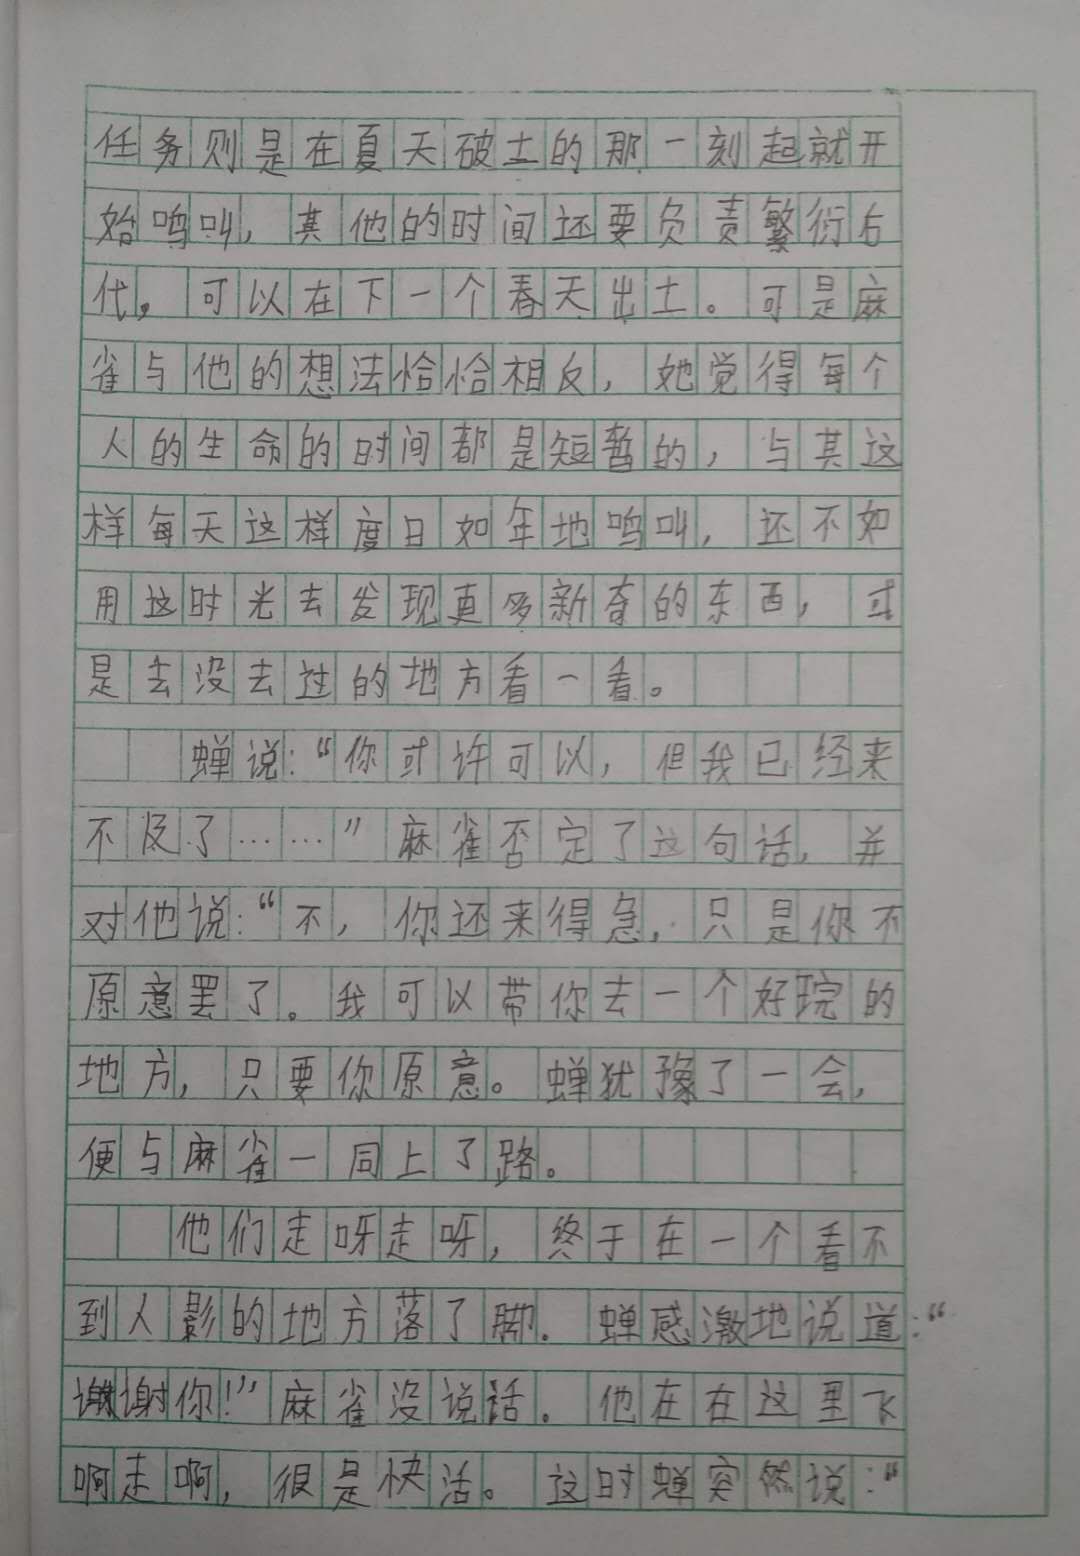 任务则是在夏天破土的那一刻起就开
始鸣叫，其他的时间还要负责繁衍后
代，可以在下一个春天出土。可是麻
雀与他的想法恰恰相反，她觉得每个
人的生命的时间都是短暂的，与其这
样每天这样度日如年地鸣叫，还不如
用这时光去发现更多新奇的东西，或
是去没去过的地方看一看。
蝉说：“你或许可以，但我已经来
不及了……”麻雀否定了这句话，并
对他说：“不，你还来得急，只是你不
原意罢了。我可以带你去一个好玩的
地方，只要你原意。蝉犹豫了一会，
便与麻雀一同上了路。
他们走呀走呀，终于在一个看不
到人影的地方落了脚．蝉感激地说道：“
谢谢你！”麻雀没说话．他在在这里飞
啊走啊，很是快活。这时蝉突然说：“